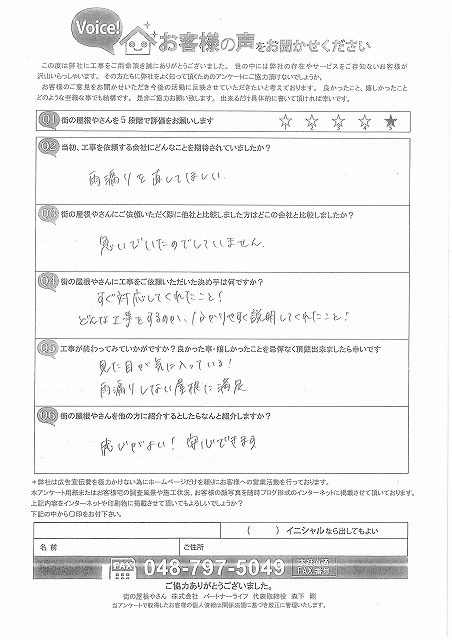 Voice! お客様の声をお聞かせください
この度は弊社に工事をご用命頂き誠にありがとうございました。 世の中には弊社の存在やサービスをご存知ないお客様が
沢山いらっしゃいます。 その方たちに弊社をよく知って頂くためのアンケートにご協力頂けないでしょうか。
お客様のご意見をお聞かせいただき今後の活動に反映させていただきたいと考えております。 良かったこと、嬉しかったこと
どのような些細な事でも結構です。 是非ご協力お願い致します。 出来るだけ具体的に書いて頂ければ幸いです。
Q1 街の屋根やさんを5段階で評価をお願いします ☆ ☆ ☆ ☆ ★
Q2 当初、工事を依頼する会社にどんなことを期待されていましたか?
雨漏りを直してほしい
Q3 街の屋根やさんにご依頼いただく際に他社と比較しました方はどこの会社と比較しましたか?
急いでいたのでしていません
Q4 街の屋根やさんに工事をご依頼いただいた決め手は何ですか?
すぐ対応してくれたこと!
どんな工事をするのか、わかりやすく説明してくれたこと!
Q5 工事が終わってみていかがですか?良かった事・嬉しかったことを忌憚なく頂戴出来ましたら幸いです
見た目が気に入っている!
雨漏りしない屋根に満足
Q6 街の屋根やさんを他の方に紹介するとしたらなんと紹介しますか?
感じがよい! 安心できます
*弊社は広告宣伝費を極力かけない為にホームページだけを頼りにお客様への営業活動を行っております。
本アンケート用紙またはお客様宅の調査風景や施工状況、お客様の顔写真を随時ブログ形式のインターネットに掲載させて頂いております。
上記内容をインターネットや印刷物に掲載させて頂いてもよろしいでしょうか?
下記の中から〇印をお付下さい。
( ) イニシャルなら出してもよい
名 前 ご住所
FAX 048-797-5049 本社直通 FAX番号
ご協力ありがとうございました。
街の屋根やさん 株式会社 パートナーライフ 代表取締役 森下 剛
当アンケートで取得したお客様の個人情報は関係法規に基づき厳正に管理いたします。